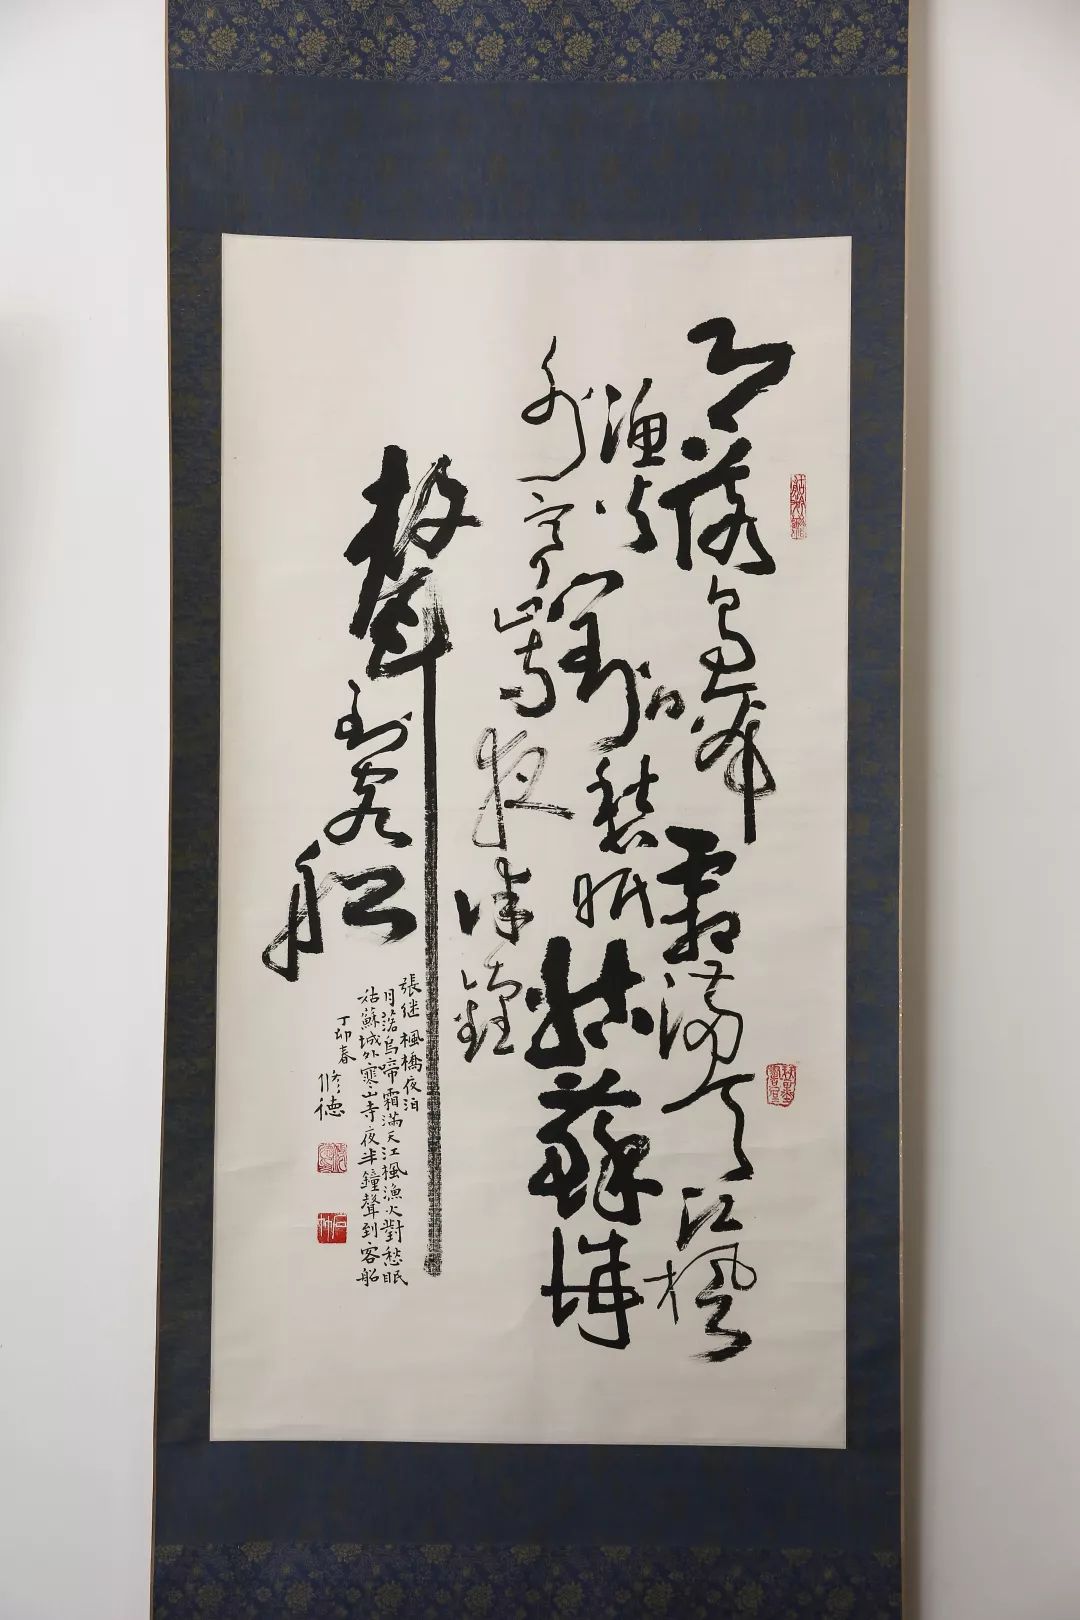 月落烏啼霜滿天江楓
漁火對愁眠姑蘇城
外寒山寺夜半鐘
聲到客船
張继 楓橋夜泊
月落烏啼霜滿天江楓漁火對愁眠
姑蘇城外寒山寺夜半鐘聲到客船
丁卯春 修德